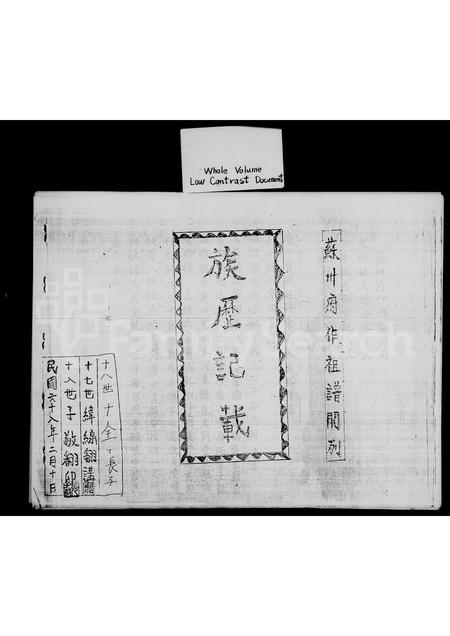 Whole Volume
Low Contrast Document
蘇州府作祖譜開列
族歷記載
十八世十全丁長子
十七世緯線翻講
十八世子敬翻印
民國六十八年二月十日
FamilySearch